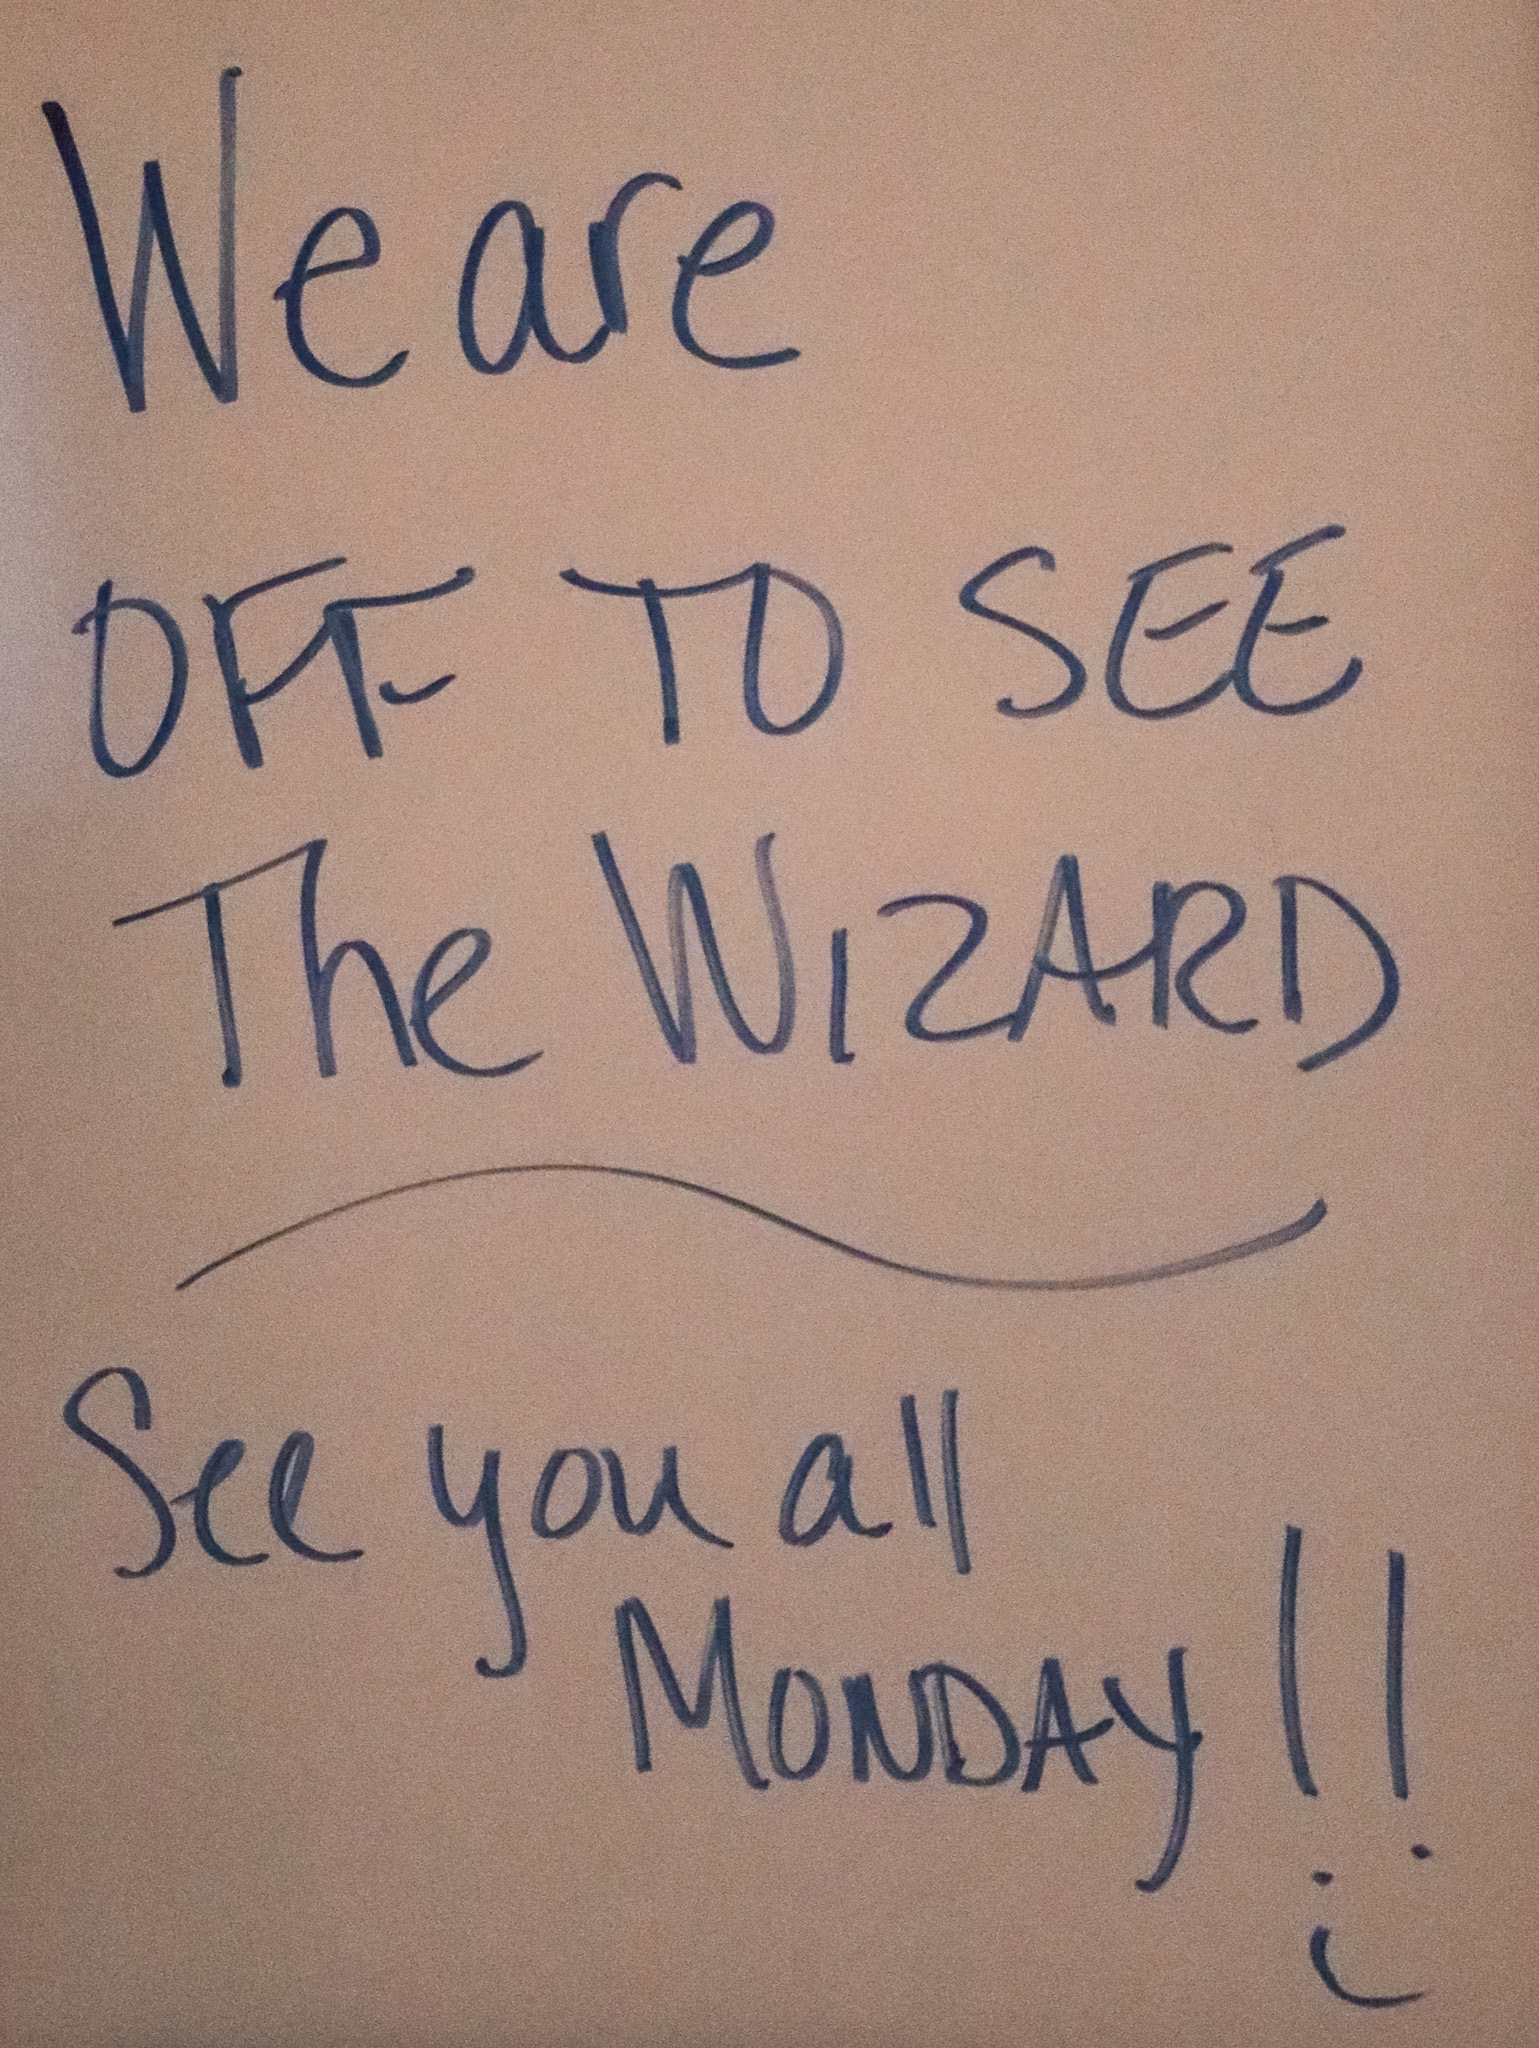 We are
OFF TO SEE
The WIZARD
See you all
MONDAY!!